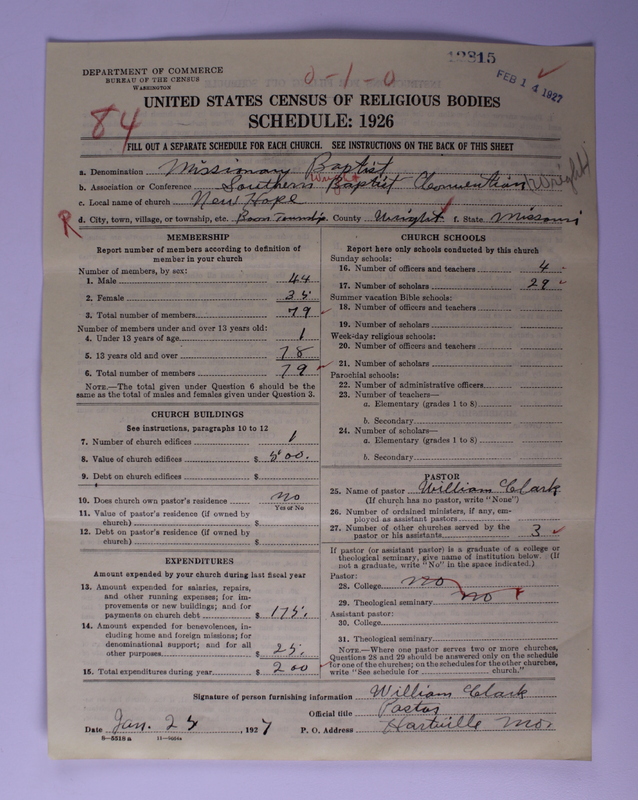 12815
FEB 14 1927
DEPARTMENT OF COMMERCE
BUREAU OF THE CENSUS
WASHINGTON
0-1-0
84
UNITED STATES CENSUS OF RELIGIOUS BODIES
SCHEDULE: 1926
FILL OUT A SEPARATE SCHEDULE FOR EACH CHURCH. SEE INSTRUCTIONS ON THE BACK OF THIS SHEET
a. Denomination Missionary Baptist
Wright
b. Association or Conference Southern Baptist Convention Wright
c. Local name of church New Hope
R
d. City, town, village, or township, etc. Boon Township County Wright f. State Missouri
MEMBERSHIP
Report number of members according to definition of
member in your church
Number of members, by sex:
1. Male 44
2. Female 35
3. Total number of members 79
Number of members under and over 13 years old:
4. Under 13 years of age 1
5. 13 years old and over 78
6. Total number of members 79
NOTE.—The total given under Question 6 should be the
same as the total of males and females given under Question 3.
CHURCH BUILDINGS
See instructions, paragraphs 10 to 12
7. Number of church edifices 1
8. Value of church edifices $ 500.
9. Debt on church edifices $
10. Does church own pastor's residence no
Yes or No
11. Value of pastor's residence (if owned by
church) $
12. Debt on pastor's residence (if owned by
church) $
EXPENDITURES
Amount expended by your church during last fiscal year
13. Amount expended for salaries, repairs,
and other running expenses; for im-
provements or new buildings; and for
payments on church debt $ 175.
14. Amount expended for benevolences, in-
cluding home and foreign missions; for
denominational support; and for all
other purposes $ 25.
15. Total expenditures during year $ 200
CHURCH SCHOOLS
Report here only schools conducted by this church
Sunday schools:
16. Number of officers and teachers 4
17. Number of scholars 29
Summer vacation Bible schools:
18. Number of officers and teachers
19. Number of scholars
Week-day religious schools:
20. Number of officers and teachers
21. Number of scholars
Parochial schools:
22. Number of administrative officers
23. Number of teachers—
a. Elementary (grades 1 to 8)
b. Secondary
24. Number of scholars—
a. Elementary (grades 1 to 8)
b. Secondary
PASTOR
25. Name of pastor William Clark
(If church has no pastor, write "None")
26. Number of ordained ministers, if any, em-
ployed as assistant pastors
27. Number of other churches served by the
pastor or his assistants 3
If pastor (or assistant pastor) is a graduate of a college or
theological seminary, give name of institution below. (If
not a graduate, write "No" in the space indicated.)
Pastor:
28. College no
29. Theological seminary no
Assistant pastor:
30. College
31. Theological seminary
NOTE.—Where one pastor serves two or more churches,
Questions 28 and 29 should be answered only on the schedule
for one of the churches; on the schedules for the other churches,
write "See schedule for church."
Signature of person furnishing information William Clark
Official title Pastor
Date Jan. 25, 1927 P. O. Address Hartville Mo.
8-5518 a